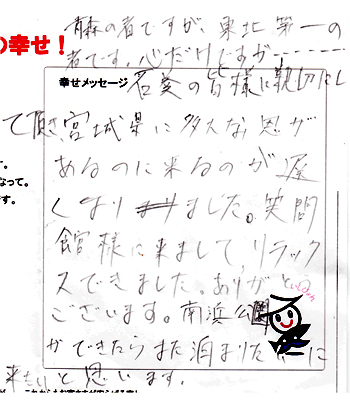 青森の者ですが、東北第一の
の幸せ！
者です。心だけですが
幸せメッセージ
石巻の皆様に親切にし
て頂き宮城県に多大な恩が
あるのに来るのが遅
くなりました。笑問
館様に来まして、リラック
スできました。ありがとい
ございます。南浜公園
ができたらまた泊まりた に
来たいと思います。
す。
なって。
です。